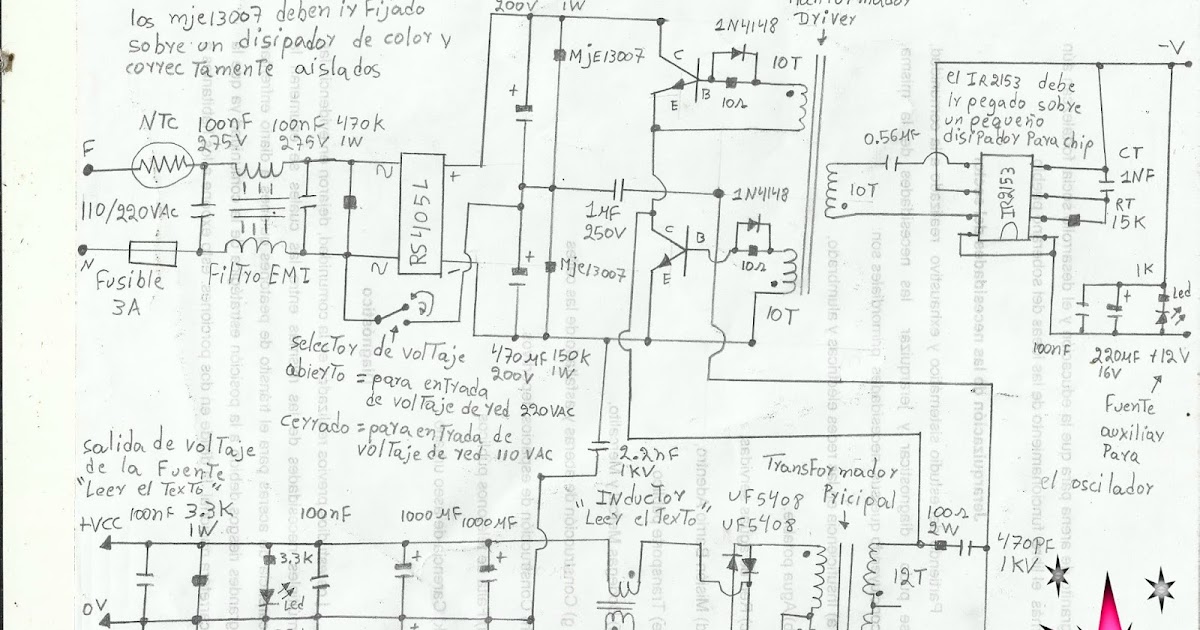 los mje13007 deben ir Fijado
sobre un disipador de calor y
correctamente aislados
200V 1W
Driver
1N4148
MjE13007
10T
10Ω
C
B
E
-V
el IR2153 debe
ir pegado sobre
un pequeño
disipador para chip
NTC 100nF 100nF 470k
275V 275V 1W
F
110/220VAC
N
Fusible
3A
Filtro EMI
RS405L
+
-
1MF
250V
Mje13007
1N4148
C
B
E
10Ω
10T
0.56MF
10T
IR2153
CT
1NF
RT
15K
1K
Led
100nF 220MF +12V
16V
Fuente
auxiliar
Para
el oscilador
selector de voltaje
abierto = para entrada
de voltaje de red 220VAC
cerrado = para entrada de
voltaje de red 110 VAC
470MF 150K
200V 1W
2.2nF
1KV
salida de voltaje
de la Fuente
"Leer el Texto"
+VCC 100nF 3.3K 100nF 1000MF 1000MF
1W
3.3K
Led
0V
INductor
"Leer el Texto"
UF5408
UF5408
Transformador
Pricipal
100Ω
2W
470PF
1KV
12T